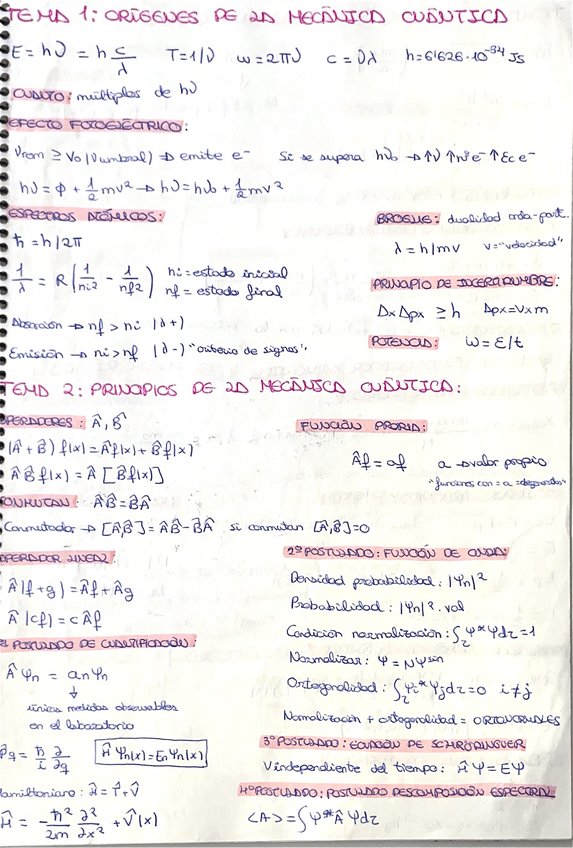 TEMA 1: ORÍGENES DE LA MECÁNICA CUÁNTICA
E = hν = h c/λ   T=1/ν   ω=2πν   c=νλ   h=6'626·10⁻³⁴ Js
CUANTO: múltiplos de hν
EFECTO FOTOELÉCTRICO:
ν rom ≥ ν₀ (ν umbral) → emite e⁻   Si se supera hν₀ → ↑ν ↑nº e⁻ ↑Ec e⁻
hν = ϕ + 1/2 mv² → hν = hν₀ + 1/2 mv²
ESPECTROS ATÓMICOS:
ħ = h/2π
1/λ = R(1/ni² - 1/nf²)   ni = estado inicial
nf = estado final
Absorción → nf > ni (λ+)
Emisión → ni > nf (λ-) "criterio de signos".
BROGLIE: dualidad onda-part.
λ = h/mv   v="velocidad"
PRINCIPIO DE INCERTIDUMBRE:
Δx Δpx ≥ h   Δpx = Vx m
POTENCIA: ω = E/t
TEMA 2: PRINCIPIOS DE LA MECÁNICA CUÁNTICA:
OPERADORES: Â, B̂
(Â + B̂) f(x) = Âf(x) + B̂f(x)
ÂB̂f(x) = Â[B̂f(x)]
CONMUTAN: ÂB̂ = B̂Â
Conmutador → [Â,B̂] = ÂB̂ - B̂Â   si conmutan [Â,B̂]=0
FUNCIÓN PROPIA:
Âf = af   a → valor propio
"funciones con = a → degeneradas"
OPERADOR LINEAL
Â(f+g) = Âf + Âg
Â(cf) = cÂf
1º POSTULADO DE CUANTIFICACIÓN:
Âψn = anψn
↓
únicas medidas observables
en el laboratorio
P̂q = ħ/i ∂/∂q   Ĥψn(x) = Enψn(x)
Hamiltoniano: Ĥ = T̂ + V̂
Ĥ = -ħ²/2m ∂²/∂x² + V̂(x)
2º POSTULADO: FUNCIÓN DE ONDA:
Densidad probabilidad: |ψn|²
Probabilidad: |ψn|². vol
Condición normalización: ∫ψ*ψdτ = 1
Normalizar: ψ = Nψ sin
Ortogonalidad: ∫ψi*ψjdτ = 0   i≠j
Normalización + ortogonalidad = ORTONORMALES
3º POSTULADO: ECUACIÓN DE SCHRÖDINGUER
V independiente del tiempo: Ĥψ = Eψ
4º POSTULADO: POSTULADO DESCOMPOSICIÓN ESPECTRAL
<A> = ∫ψ*Âψdτ